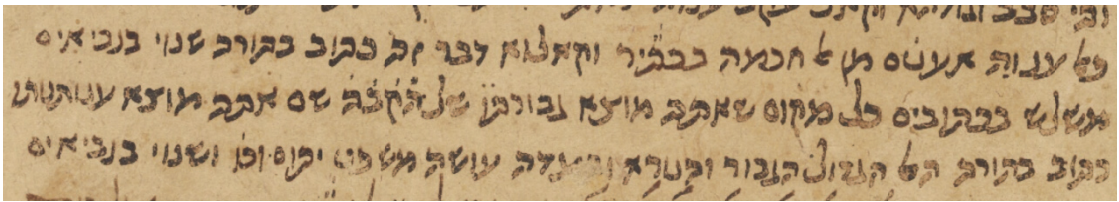 ופי סבב
ענוה מן אל חכמה בכתיר וקאלוא דבר זה כתוב בתורה שנוי בנביאים
משלש בכתובים כל מקום שאתה מוצא גבורתו של הקבה שם אתה מוצא ענותנותו
כתוב בתורה האל הגדול הגבור והנורא עושה משפט יתום וכו ושנוי בנביאים